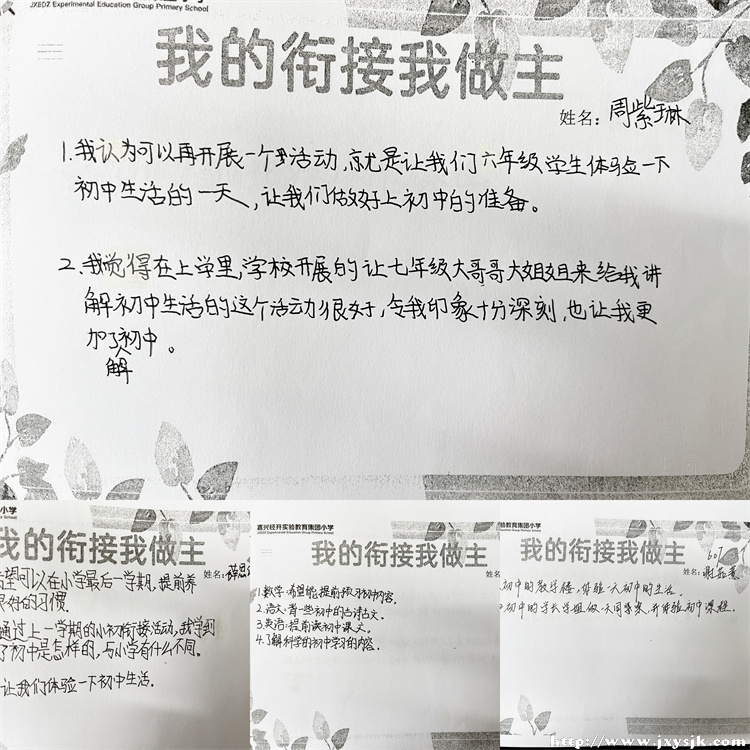 JXEDZ Experimental Education Group Primary School
我的衔接我做主
姓名：周紫琳
1.我认为可以再开展一个活动,就是让我们六年级学生体验一下
初中生活的一天,让我们做好上初中的准备。
2.我觉得在上学里,学校开展的让七年级大哥哥大姐姐来给我讲
解初中生活的这个活动很好,令我印象十分深刻,也让我更
加了初中。
解
小学
我的衔接我做主
姓名：
望可以在小学最后一学期,提前养
良好的习惯.
通过上一学期的小初衔接活动,我学到
了初中是怎样的,与小学有什么不同.
让我们体验一下初中生活.
嘉兴经开实验教育集团小学
JXEDZ Experimental Education Group Primary School
我的衔接我做主
1.数学:希望能提前预习初中内容.
2.语文:背一些初中的古诗古文.
3.英语:提前读初中课文.
4.了解科学的初中学习的内容.
嘉兴经开实验教育集团小学
JXEDZ Experimental Education Group Primary School
我的衔接我做主
姓名：谢
初中的教学楼,体验一天初中的生活.
初中的学长学姐做一天同学,并体验初中课程.
http://www.jxysjk.com